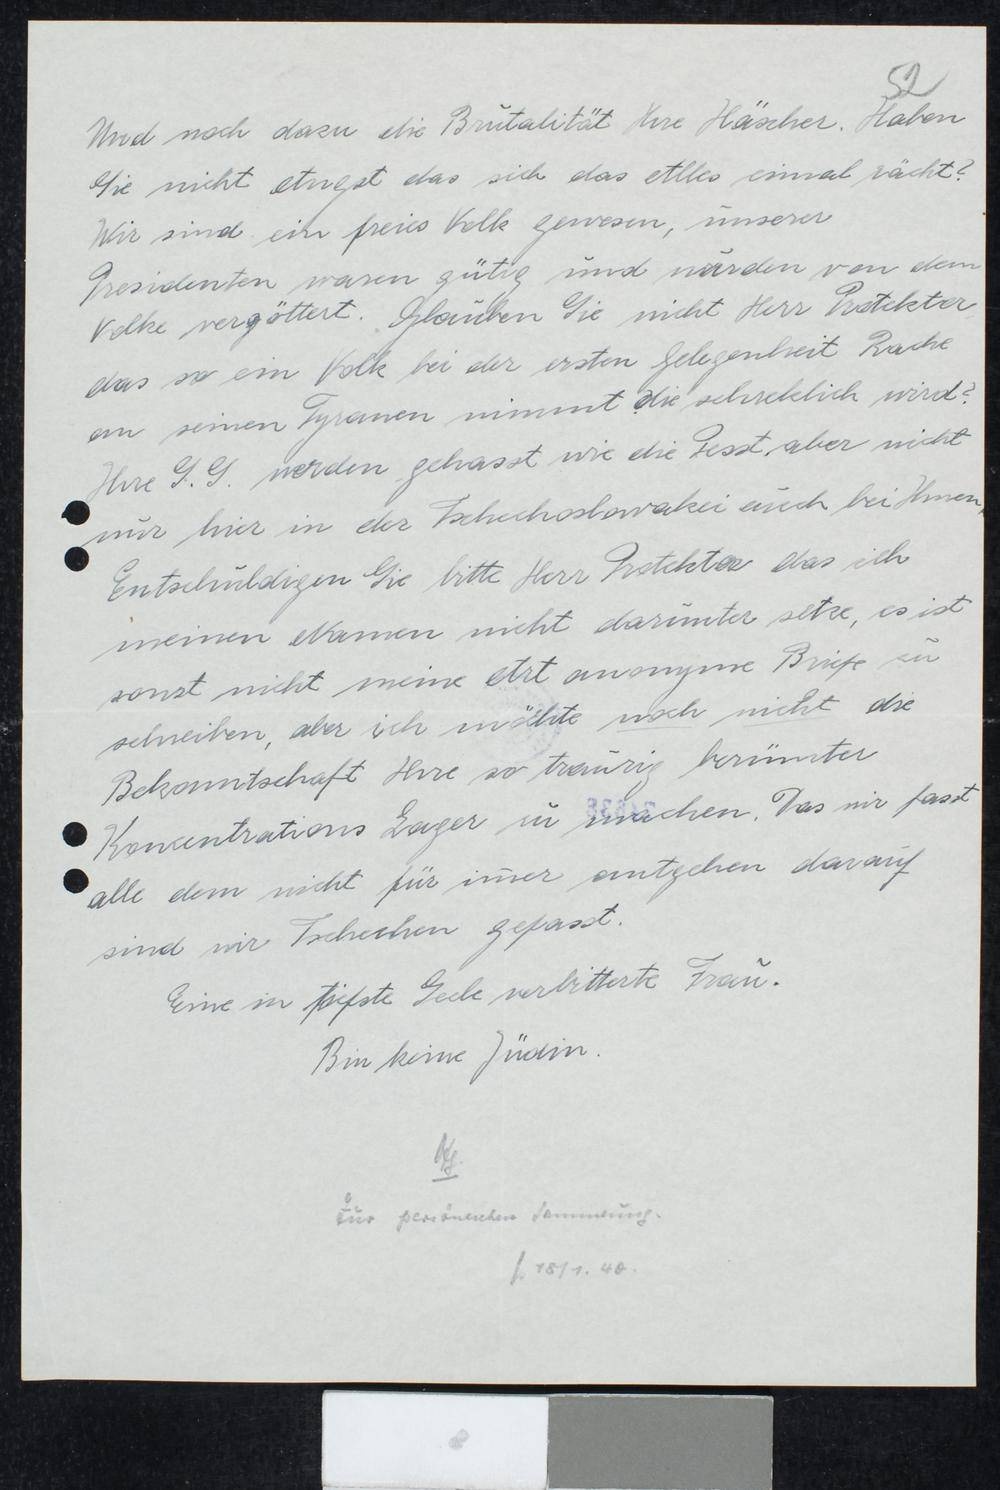 52
Und noch dazu die Brutalität Ihre Häscher. Haben
Sie nicht Angst das sich das Alles einmal rächt?
Wir sind ein freies Volk gewesen, unserer
Presidenten waren gütig und wurden von dem
Volke vergöttert. Glauben Sie nicht Herr Protektor
das so ein Volk bei der ersten Gelegenheit Rache
an seinen Tyranen nimmt die schreklich wird?
Ihre S.S. werden gehasst wie die Pesst, aber nicht
nur hier in der Tschechoslowakei auch bei Ihnen,
Entschuldigen Sie bitte Herr Protektor das ich
meinen Namen nicht darunter setze, es ist
sonst nicht meine Art anonyme Briefe zu
schreiben, aber ich möchte noch nicht die
Bekanntschaft Ihre so traurig berümter
Koncentrations Lager zu machen. Das wir fasst
alle dem nicht für imer entgehen darauf
sind wir Tschechen gefasst.
Eine in tiefste Seele verbitterte Frau.
Bin keine Jüdin.
Zur persönlichen Sammlung.
18/1. 40.